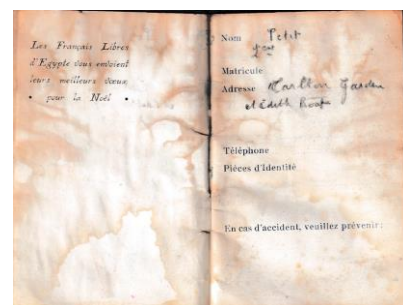 Les Français Libres
d'Egypte vous envoient
leurs meilleurs vœux
• pour la Noël •
Nom Petit
Matricule
Adresse Carlton Garden
Téléphone
Pièces d'Identité
En cas d'accident, veuillez prévenir :